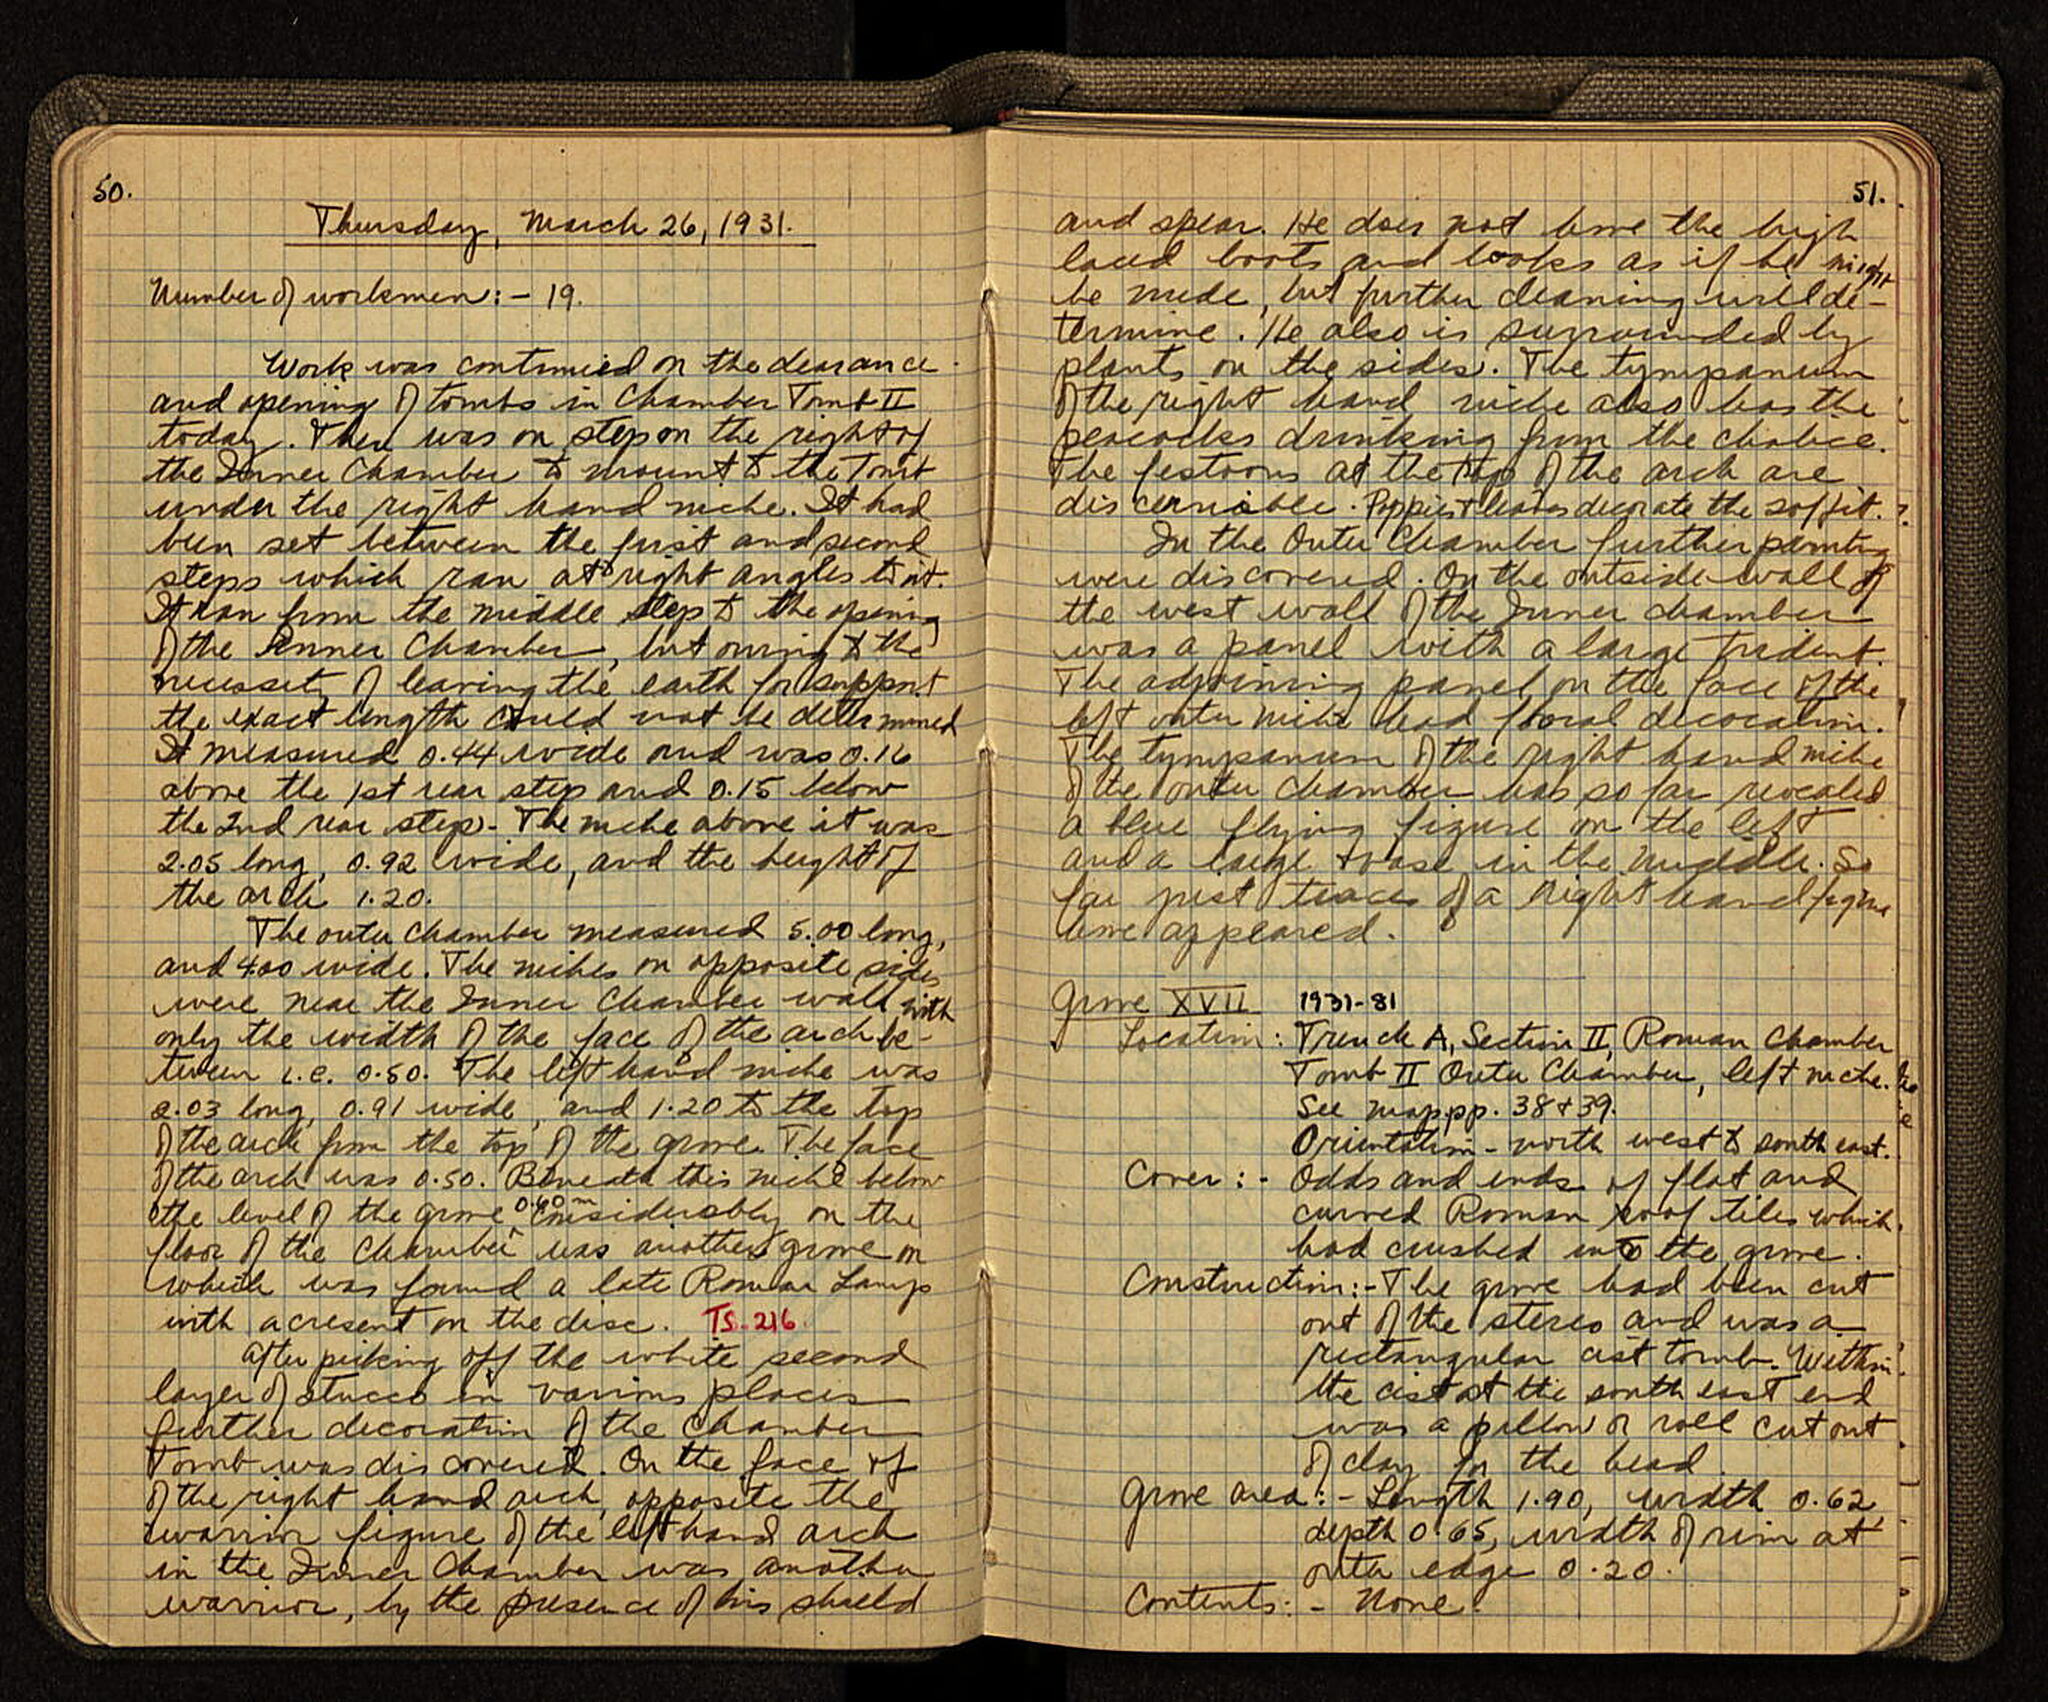 50.
Thursday, March 26, 1931.
Number of workmen:- 19.
Work was continued on the clearance
and opening of tombs in Chamber Tomb II
today. There was on step on the right of
the Inner Chamber to mount to the Tomb
under the right hand niche. It had
been set between the first and second
steps which ran at right angles to it.
It ran from the middle step to the opening
of the Inner Chamber, but owing to the
necessity of leaving the earth for support
the exact length could not be determined
It measured 0.44 wide and was 0.16
above the 1st rear step and 0.15 below
the 2nd rear step. The niche above it was
2.05 long, 0.92 wide, and the height of
the arch 1.20.
The outer chamber measured 5.00 long,
and 4.00 wide. The niches on opposite sides
were near the Inner Chamber wall with
only the width of the face of the arch be-
tween i.e. 0.50. The left hand niche was
2.03 long, 0.91 wide, and 1.20 to the top
of the arch from the top of the grave. The face
of the arch was 0.50. Beneath this niche below
the level of the grave 0.60 m considerably on the
floor of the chamber was another grave on
which was found a late Roman Lamp
with a cresent on the disc. TS. 216
After picking off the white second
layer of stucco in various places
further decoration of the Chamber
Tomb was discovered. On the face of
of the right hand arch, opposite the
warrior figure of the left hand arch
in the Inner Chamber was another
warrior, by the presence of his shield
51.
and spear. He does not have the high
laced boots and looks as if he might
be nude, but further cleaning will de-
termine. He also is surrounded by
plants on the sides. The tympanum
of the right hand niche also has the
peacocks drinking from the chalice.
The festoons at the top of the arch are
discernible. Poppies + leaves decorate the soffit.
In the Outer Chamber further painting
were discovered. On the outside wall of
the west wall of the Inner chamber
was a panel with a large trident.
The adjoining panel on the face of the
left outer niche had floral decoration.
The tympanum of the right hand niche
of the outer chamber has so far revealed
a blue flying figure on the left
and a large vase in the middle. So
far just traces of a right hand figure
have appeared.
Grave XVII 1931-81
Location: Trench A, Section II, Roman Chamber
Tomb II Outer Chamber, left niche.
See map pp. 38 + 39.
Orientation - north west to south east.
Cover:- Odds and ends of flat and
curved Roman roof tiles which
had crushed into the grave.
Construction:- The grave had been cut
out of the stereo and was a
rectangular cist tomb. Within
the cist at the south east end
was a pillow or roll cut out
of clay for the head.
Grave area:- Length 1.90, width 0.62
depth 0.65, width of rim at
outer edge 0.20.
Contents:- None.